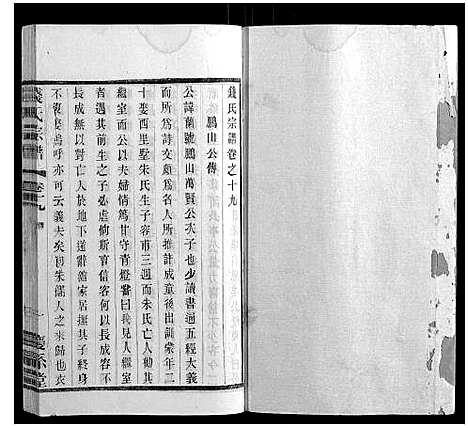 錢氏宗譜卷之十九
鵬山公傳
公諱蘭號鵬山萬賢公次子也少讀書通五經大義
而所為詩文頗為名人所推許成童後出訓蒙年二
十娶西里墅朱氏生子容甫三週而朱氏亡人勸其
繼室而公以夫婦情篤甘守青燈嘗曰我見人繼室
者遇其前生之子必虐倘斯盲信容何以長成容不
長成無以對亡人於地下遂辭盡家居撫其子終身
不復娶嗚呼亦可云義夫矣初朱孺人之來歸也衣
錢氏宗譜
卷十九